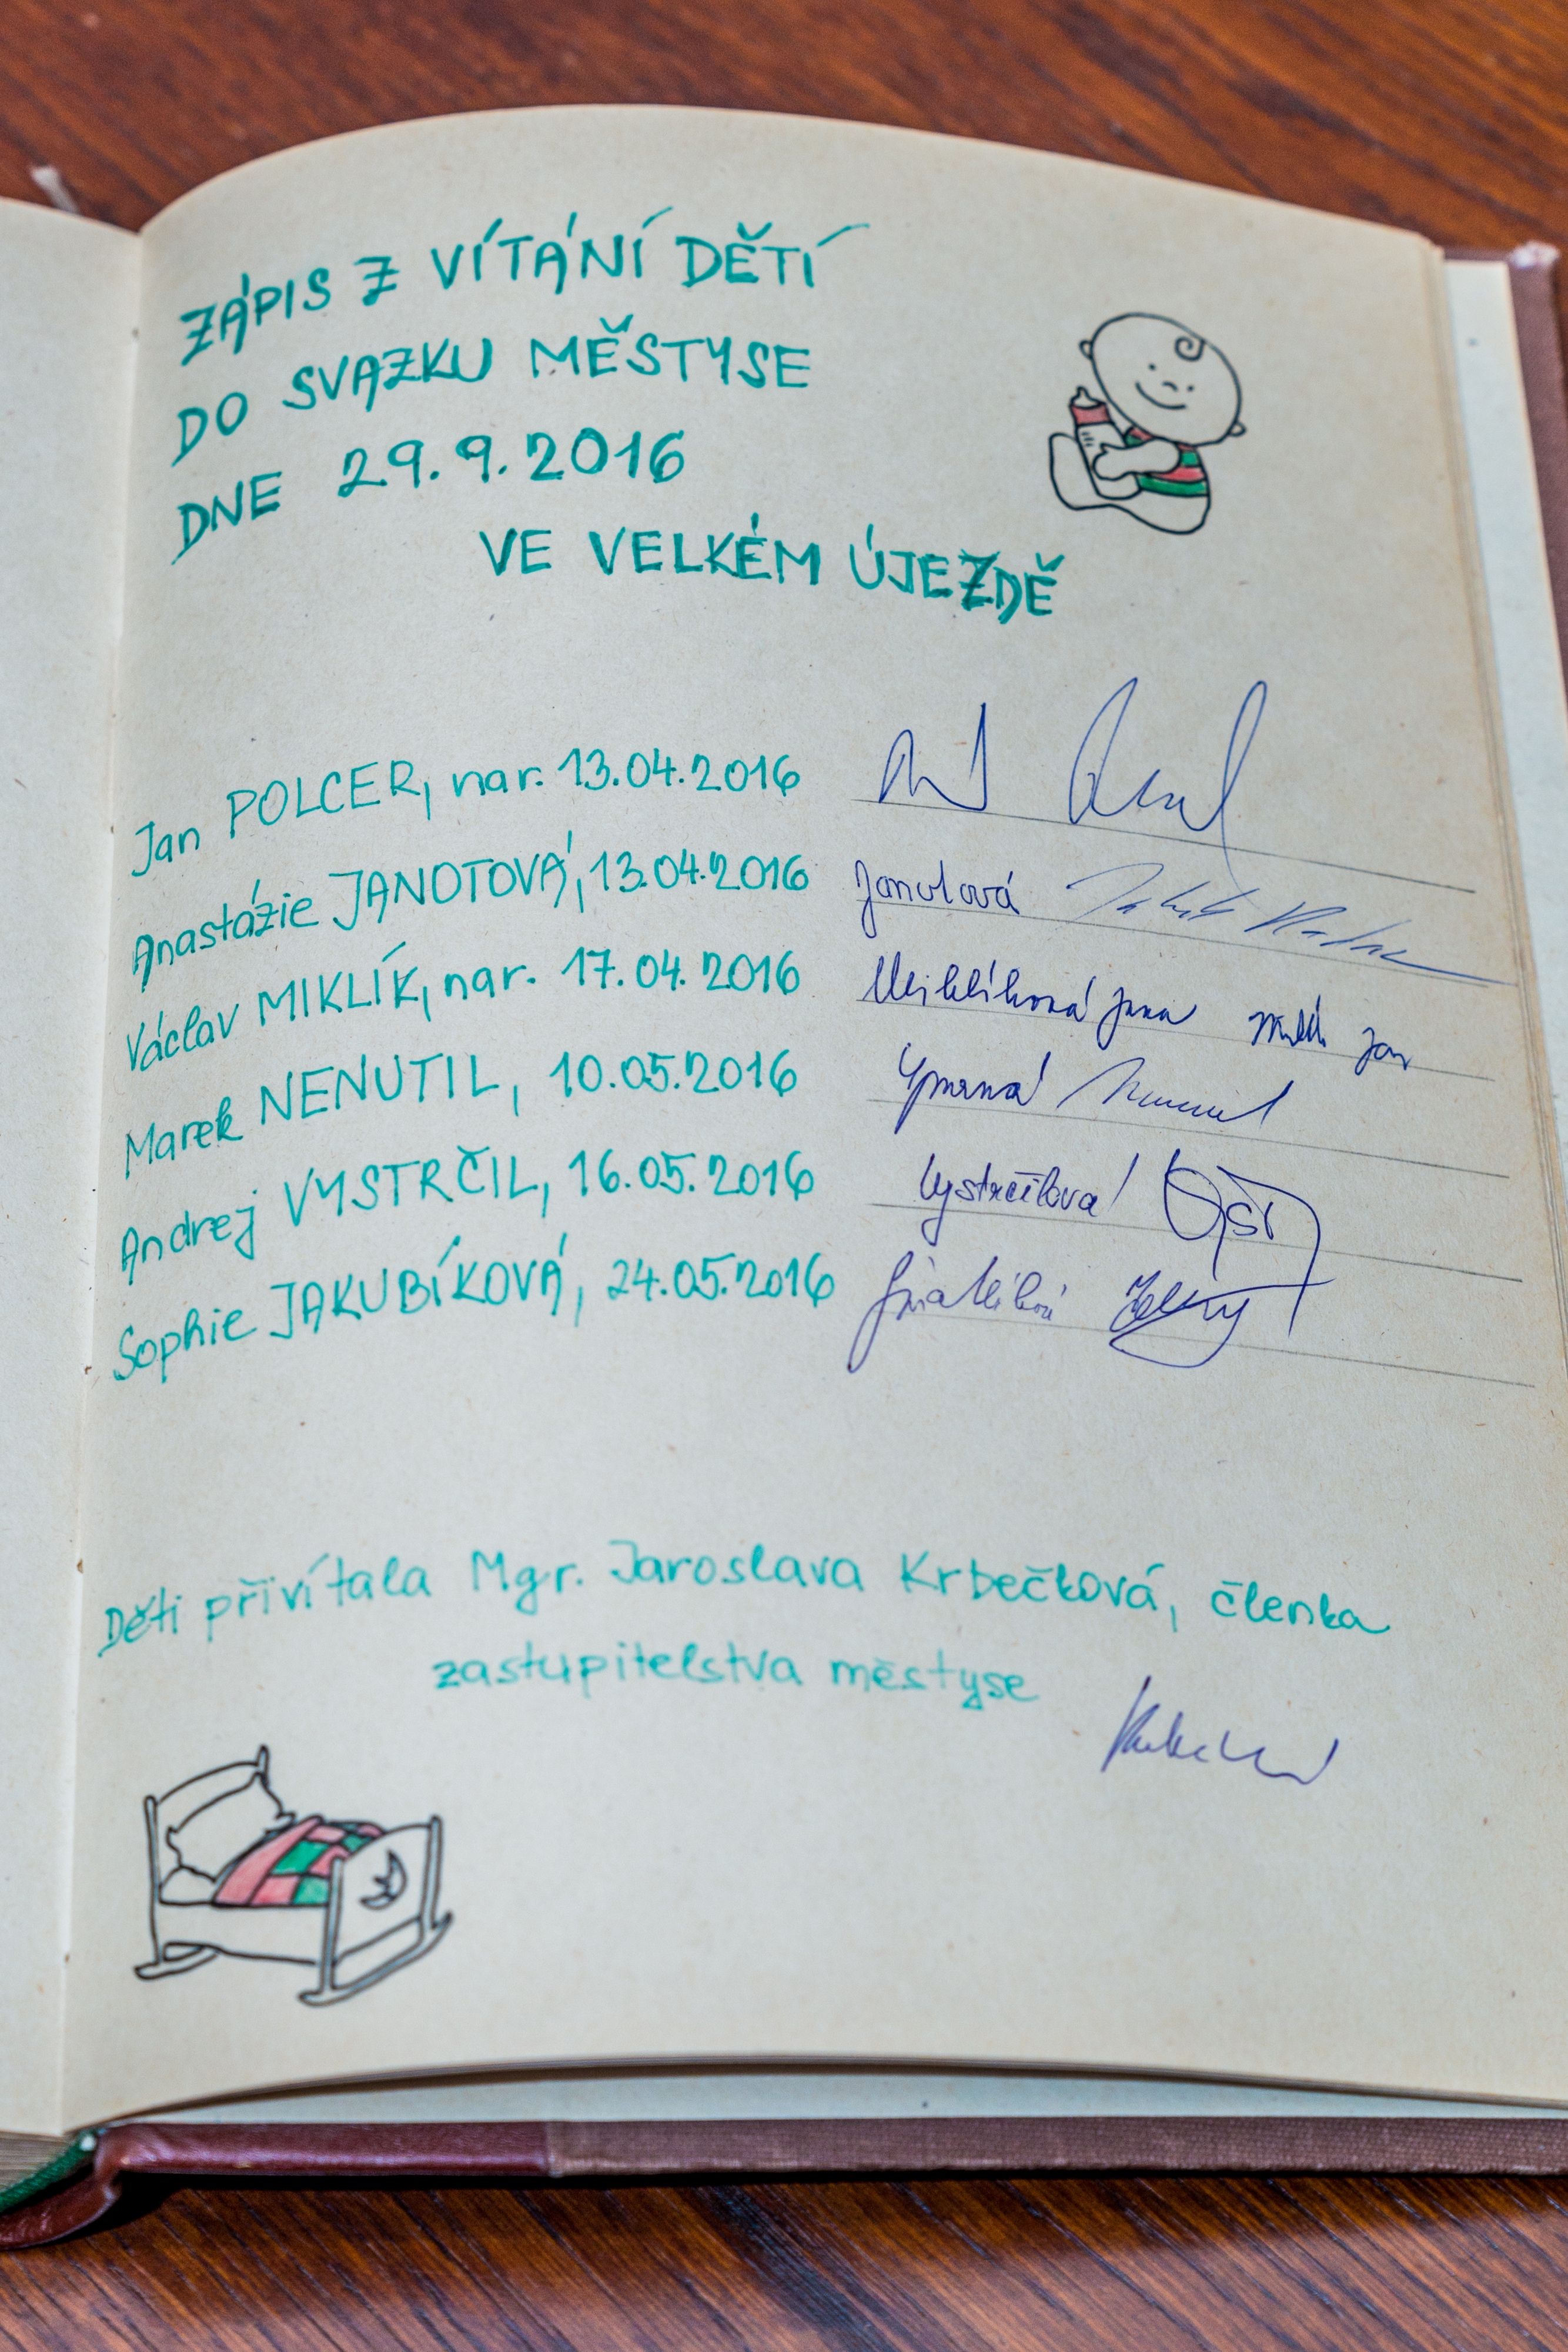 ZÁPIS Z VÍTÁNÍ DĚTÍ
DO SVAZKU MĚSTYSE
DNE 29.9.2016
VE VELKÉM ÚJEZDĚ
Jan POLCER, nar. 13.04.2016
Anastázie JANOTOVÁ, 13.04.2016 Janotová
Václav MIKLÍK, nar. 17.04.2016 Miklíková Jana Miklík Jan
Marek NENUTIL, 10.05.2016
Andrej VYSTRČIL, 16.05.2016 Vystrčilová
Sophie JAKUBÍKOVÁ, 24.05.2016
Děti přivítala Mgr. Jaroslava Krbečková, členka
zastupitelstva městyse